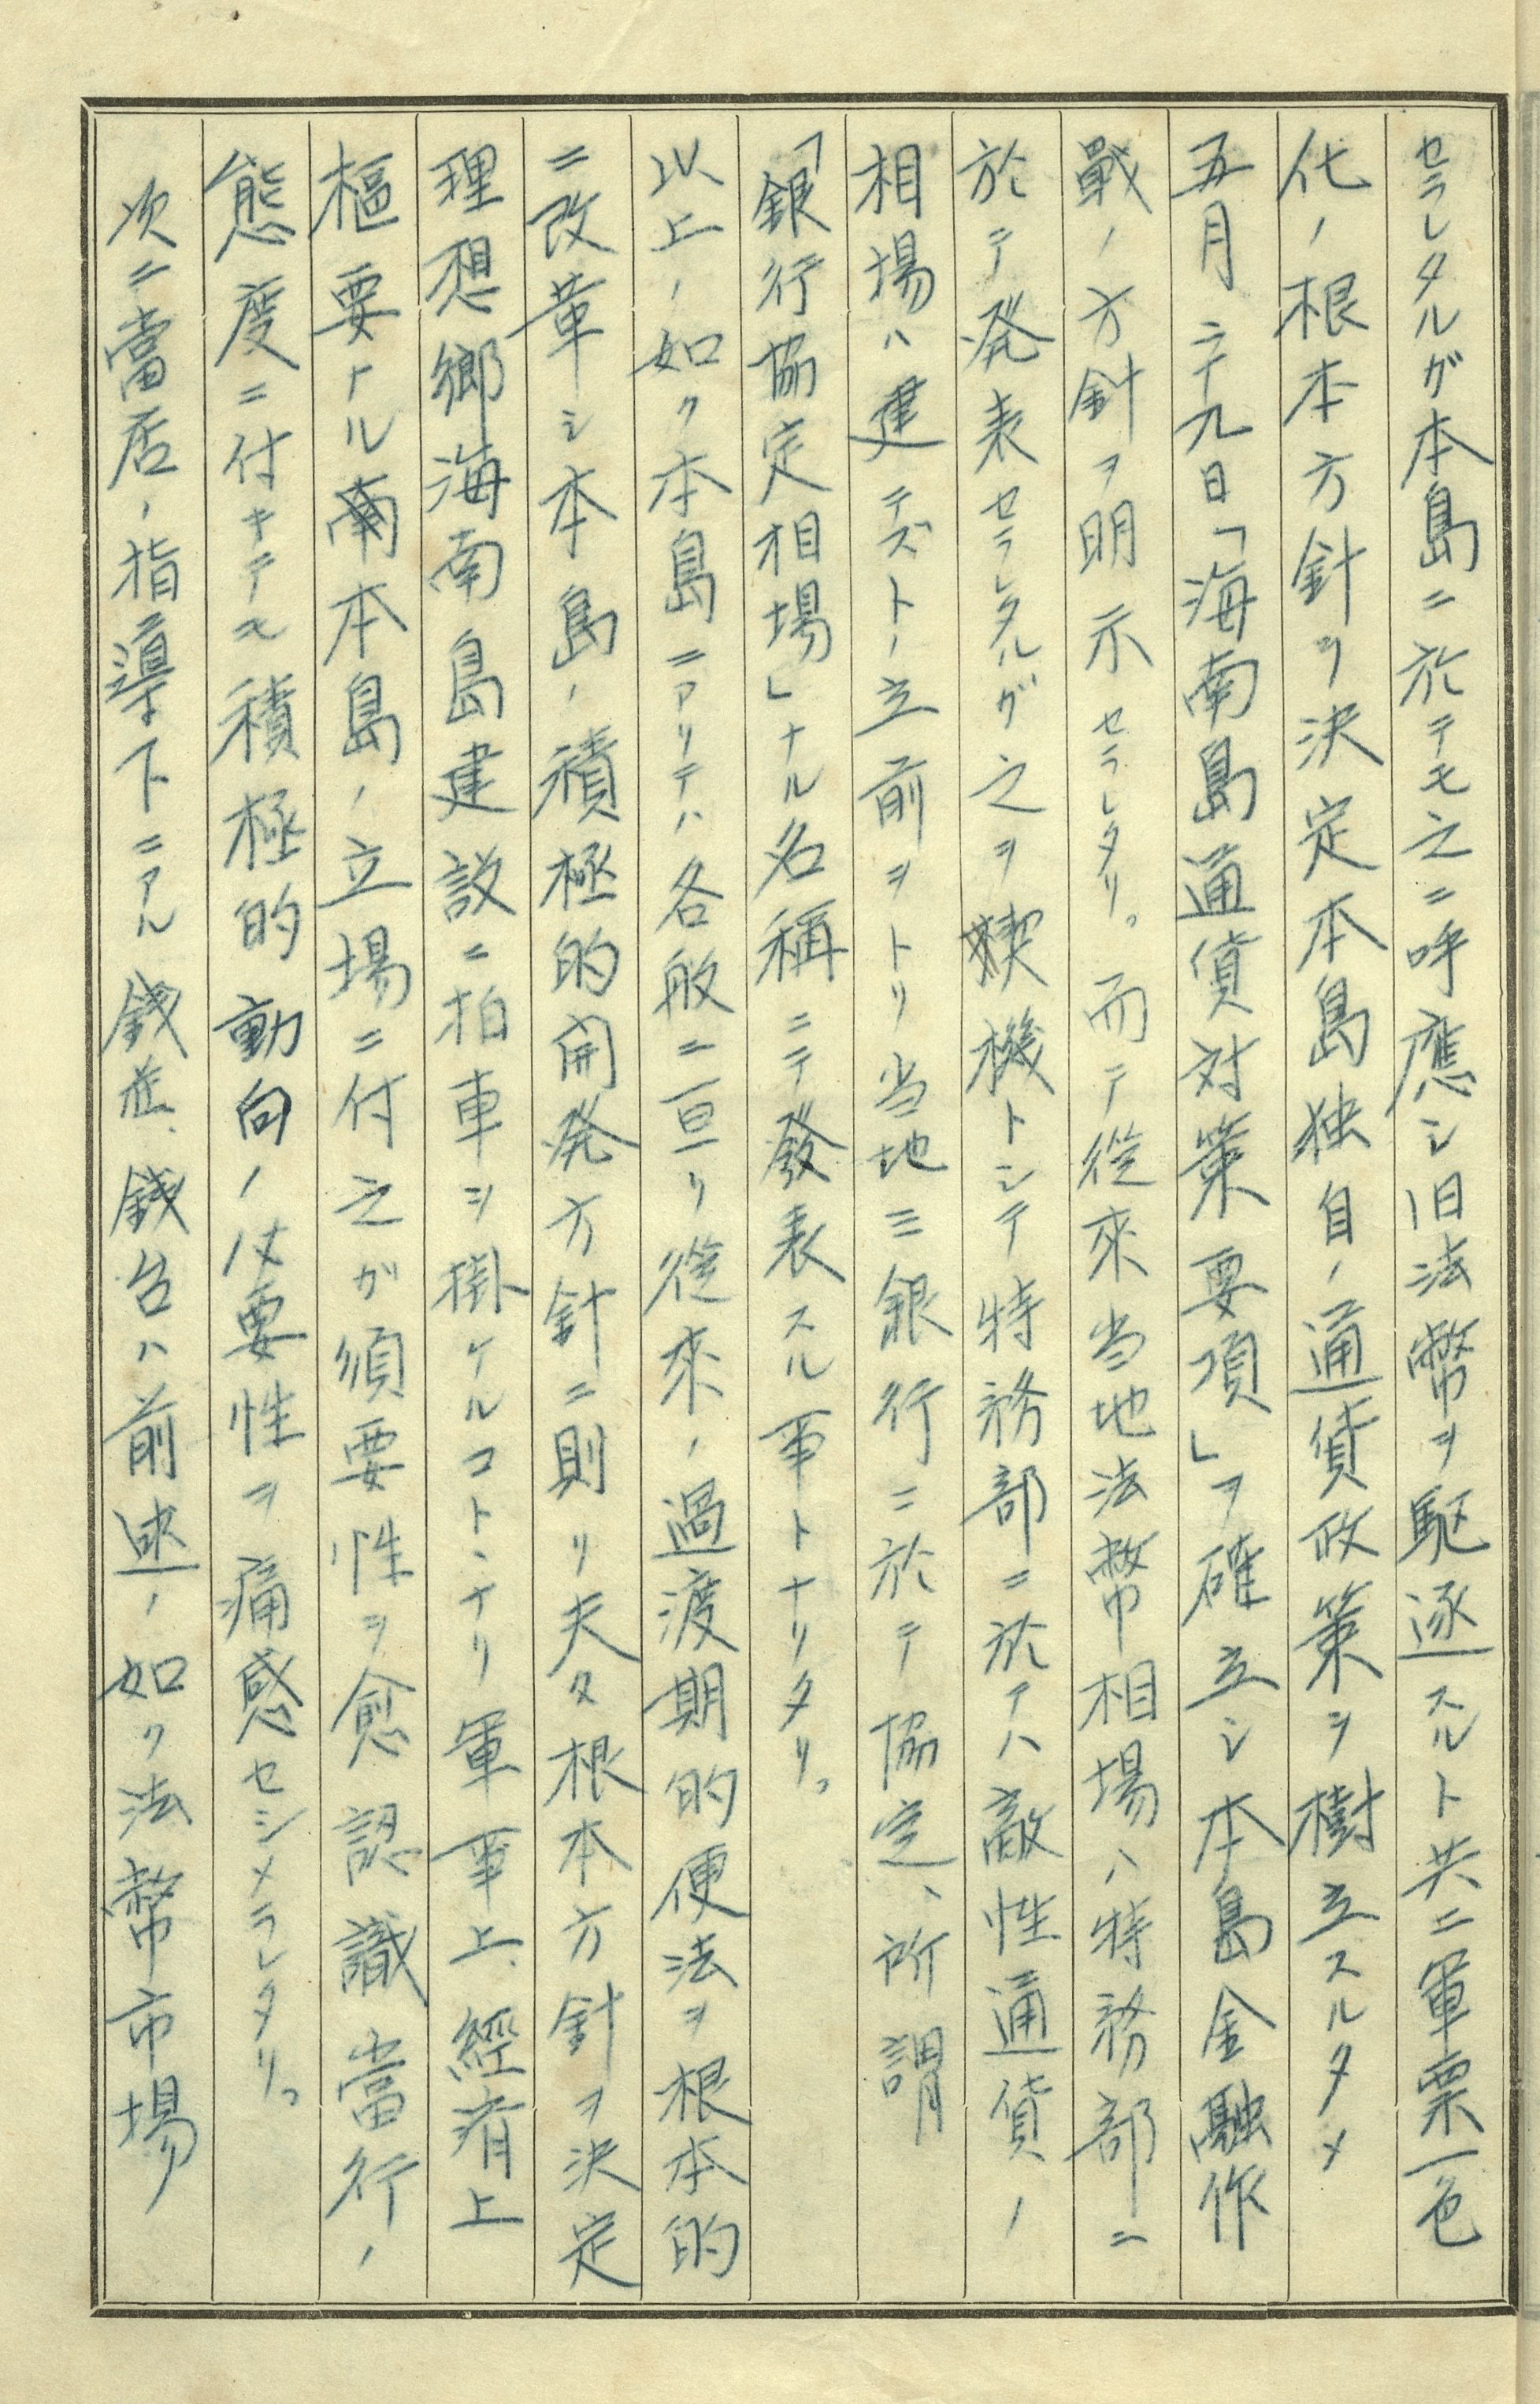 セラレタルガ本島ニ於テモ之ニ呼應シ旧法幣ヲ駆逐スルト共ニ軍票一色
化ノ根本方針ヲ決定本島独自ノ通貨政策ヲ樹立スルタメ
五月二十九日「海南島通貨対策要項」ヲ確立シ本島金融作
戰ノ方針ヲ明示セラレタリ。而テ從來当地法幣相場ハ特務部ニ
於テ発表セラレタルガ之ヲ契機トシテ特務部ニ於テハ敵性通貨ノ
相場ハ建テズトノ立前ヲトリ当地三銀行ニ於テ協定、所謂
「銀行協定相場」ナル名稱ニテ發表スル事トナリタリ。
以上ノ如ク本島ニアリテハ各般ニ亘リ從來ノ過渡期的便法ヲ根本的
ニ改革シ本島ノ積極的開発方針ニ則リ夫々根本方針ヲ決定
理想郷海南島建設ニ拍車ヲ掛ケルコトヽナリ軍事上、經済上
樞要ナル南本島ノ立場ニ付之が須要性ヲ愈認識當行ノ
態度ニ付キテモ積極的動向ノ必要性ヲ痛感セシメラレタリ。
次ニ當店ノ指導下ニアル錢莊、錢台ハ前述ノ如ク法幣市場